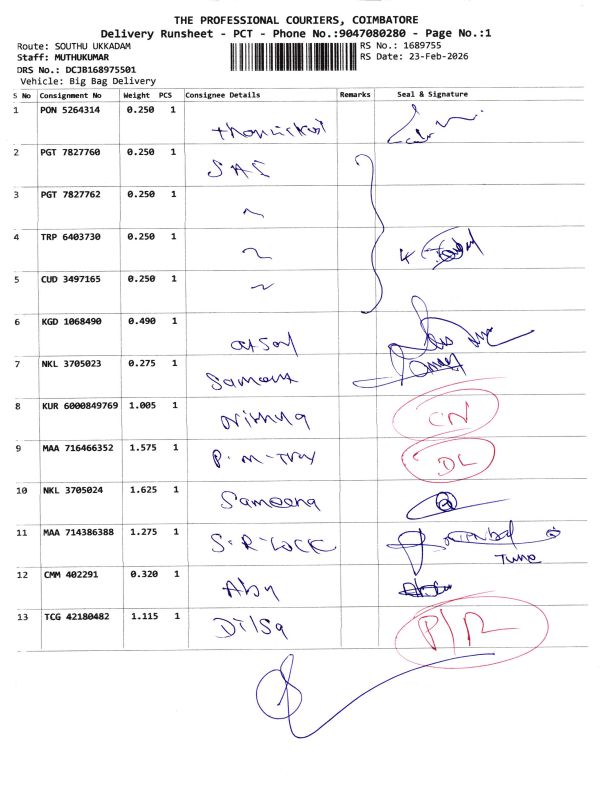 THE PROFESSIONAL COURIERS, COIMBATORE
Delivery Runsheet - PCT - Phone No.:9047080280 - Page No.:1
Route: SOUTHU UKKADAM RS No.: 1689755
Staff: MUTHUKUMAR RS Date: 23-Feb-2026
DRS No.: DCJB168975501
Vehicle: Big Bag Delivery
S No Consignment No Weight PCS Consignee Details Remarks Seal & Signature
1 PON 5264314 0.250 1
2 PGT 7827760 0.250 1 SAS
3 PGT 7827762 0.250 1
4 TRP 6403730 0.250 1
5 CUD 3497165 0.250 1
6 KGD 1068490 0.490 1
7 NKL 3705023 0.275 1 Sameena
8 KUR 6000849769 1.005 1 CN
9 MAA 716466352 1.575 1 P.M-Trx DL
10 NKL 3705024 1.625 1 Sameena
11 MAA 714386388 1.275 1 S-R-LOCK
12 CMM 402291 0.320 1 Aby
13 TCG 42180482 1.115 1 Dilsa P/R